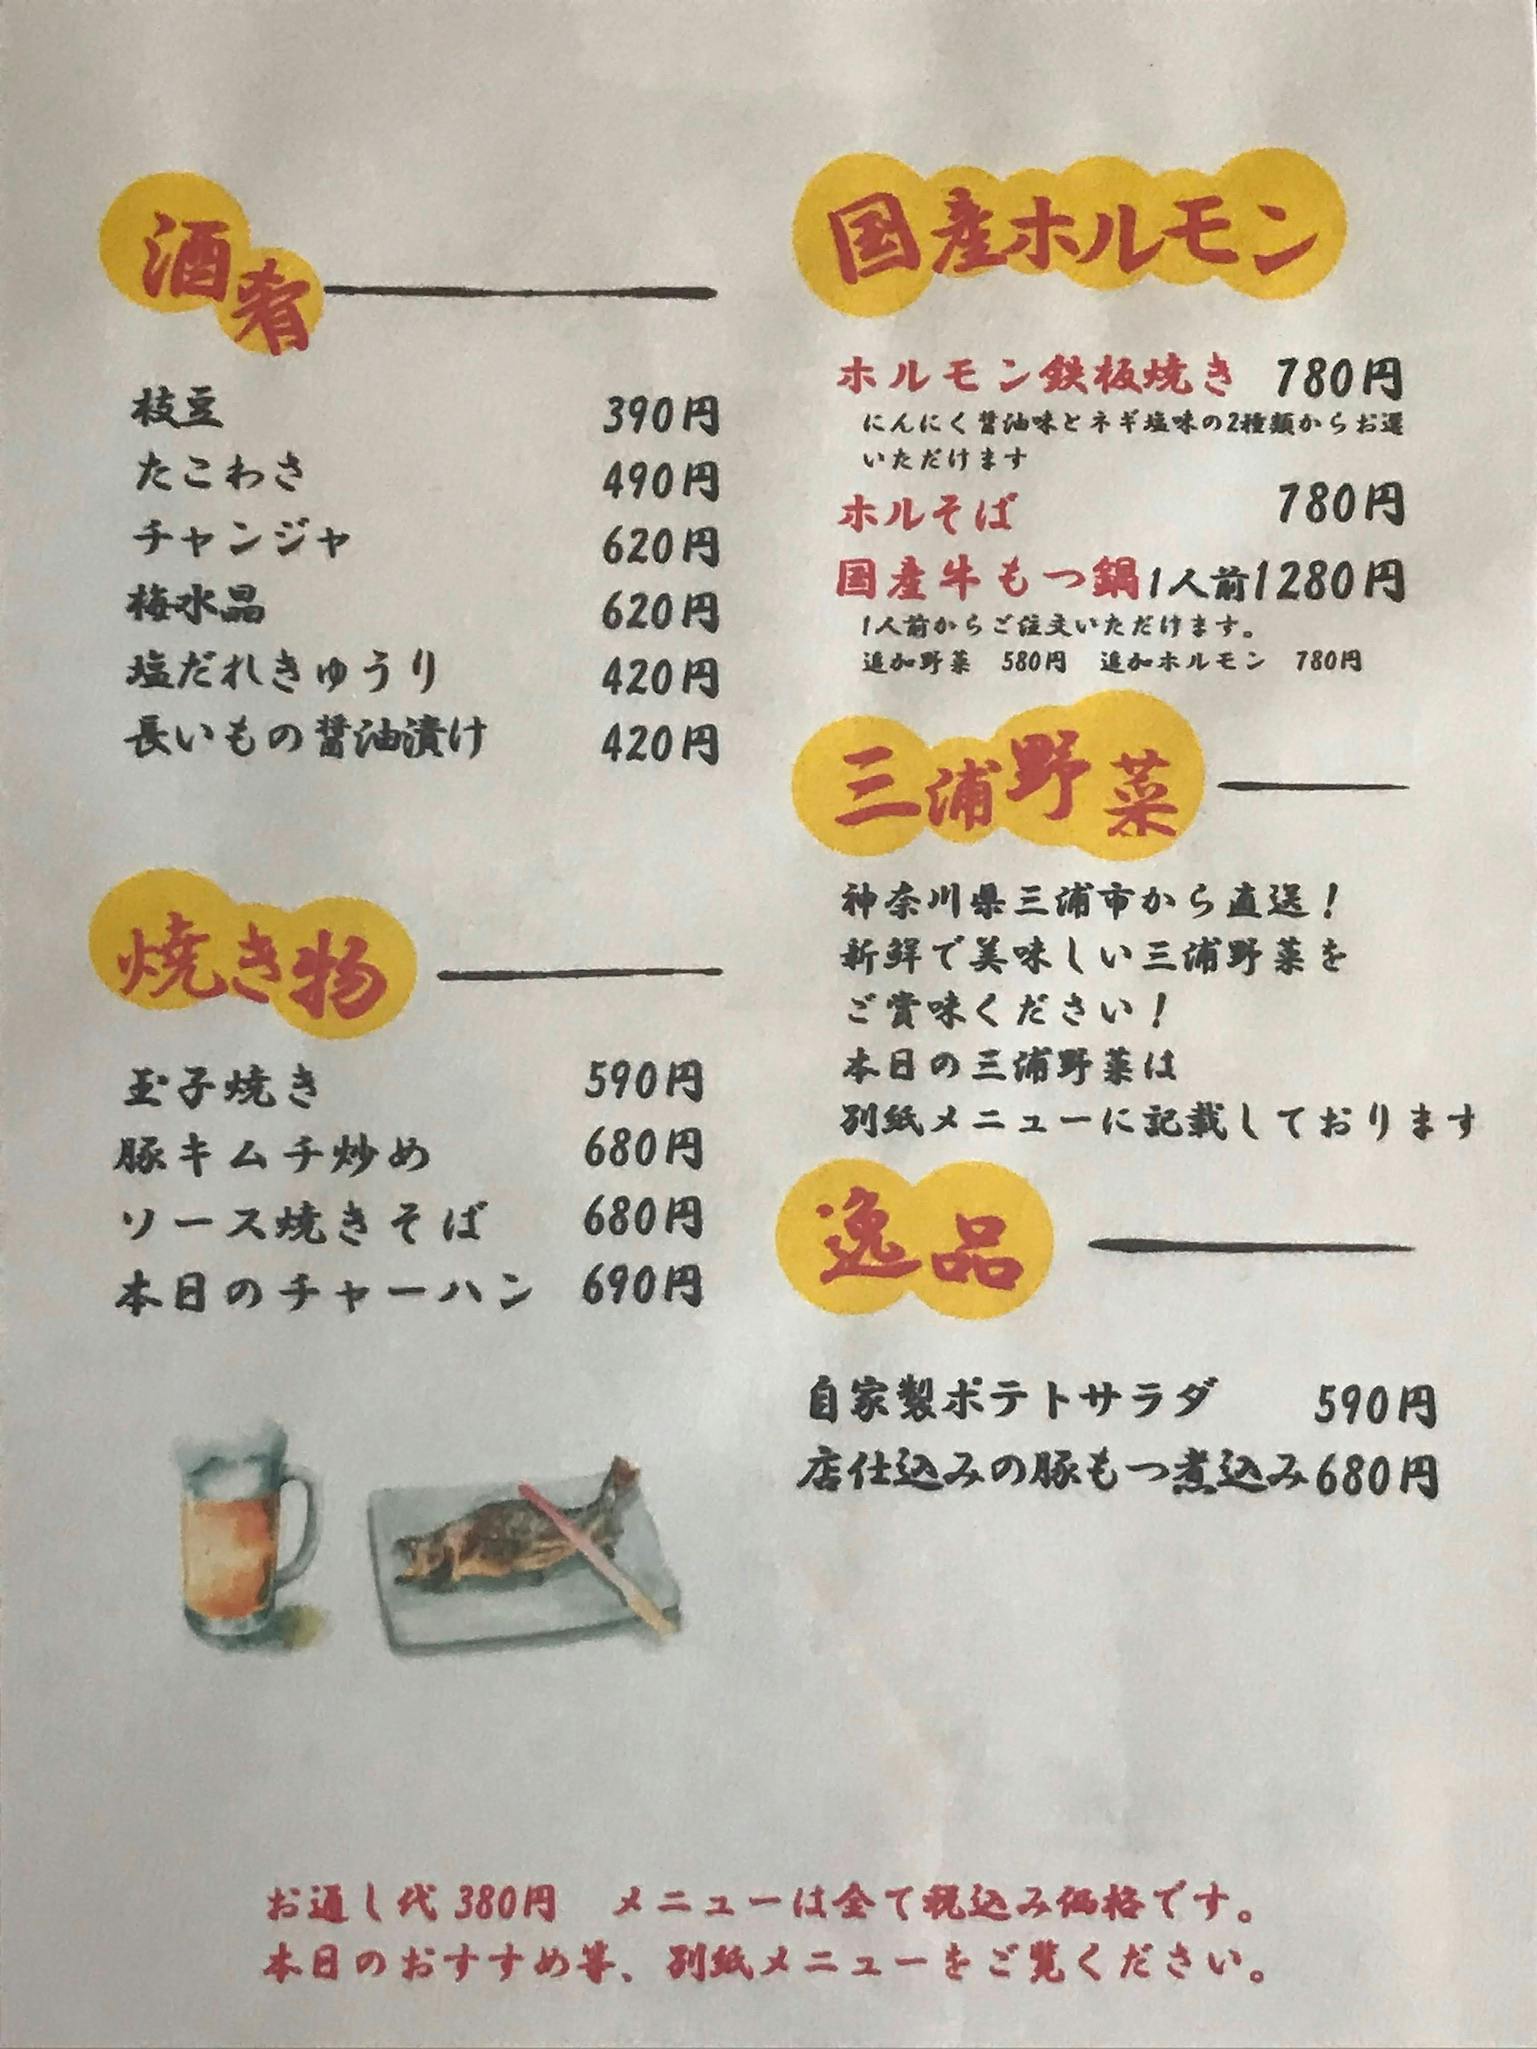 酒肴
枝豆 390円
たこわさ 490円
チャンジャ 620円
梅水晶 620円
塩だれきゅうり 420円
長いもの醤油漬け 420円
焼き物
玉子焼き 590円
豚キムチ炒め 680円
ソース焼きそば 680円
本日のチャーハン 690円
国産ホルモン
ホルモン鉄板焼き 780円
にんにく醤油味とネギ塩味の2種類からお選
いただけます
ホルそば 780円
国産牛もつ鍋1人前1280円
1人前からご注文いただけます。
追加野菜 580円 追加ホルモン 780円
三浦野菜
神奈川県三浦市から直送！
新鮮で美味しい三浦野菜を
ご賞味ください！
本日の三浦野菜は
別紙メニューに記載しております
逸品
自家製ポテトサラダ 590円
店仕込みの豚もつ煮込み680円
お通し代 380円 メニューは全て税込み価格です。
本日のおすすめ等、別紙メニューをご覧ください。